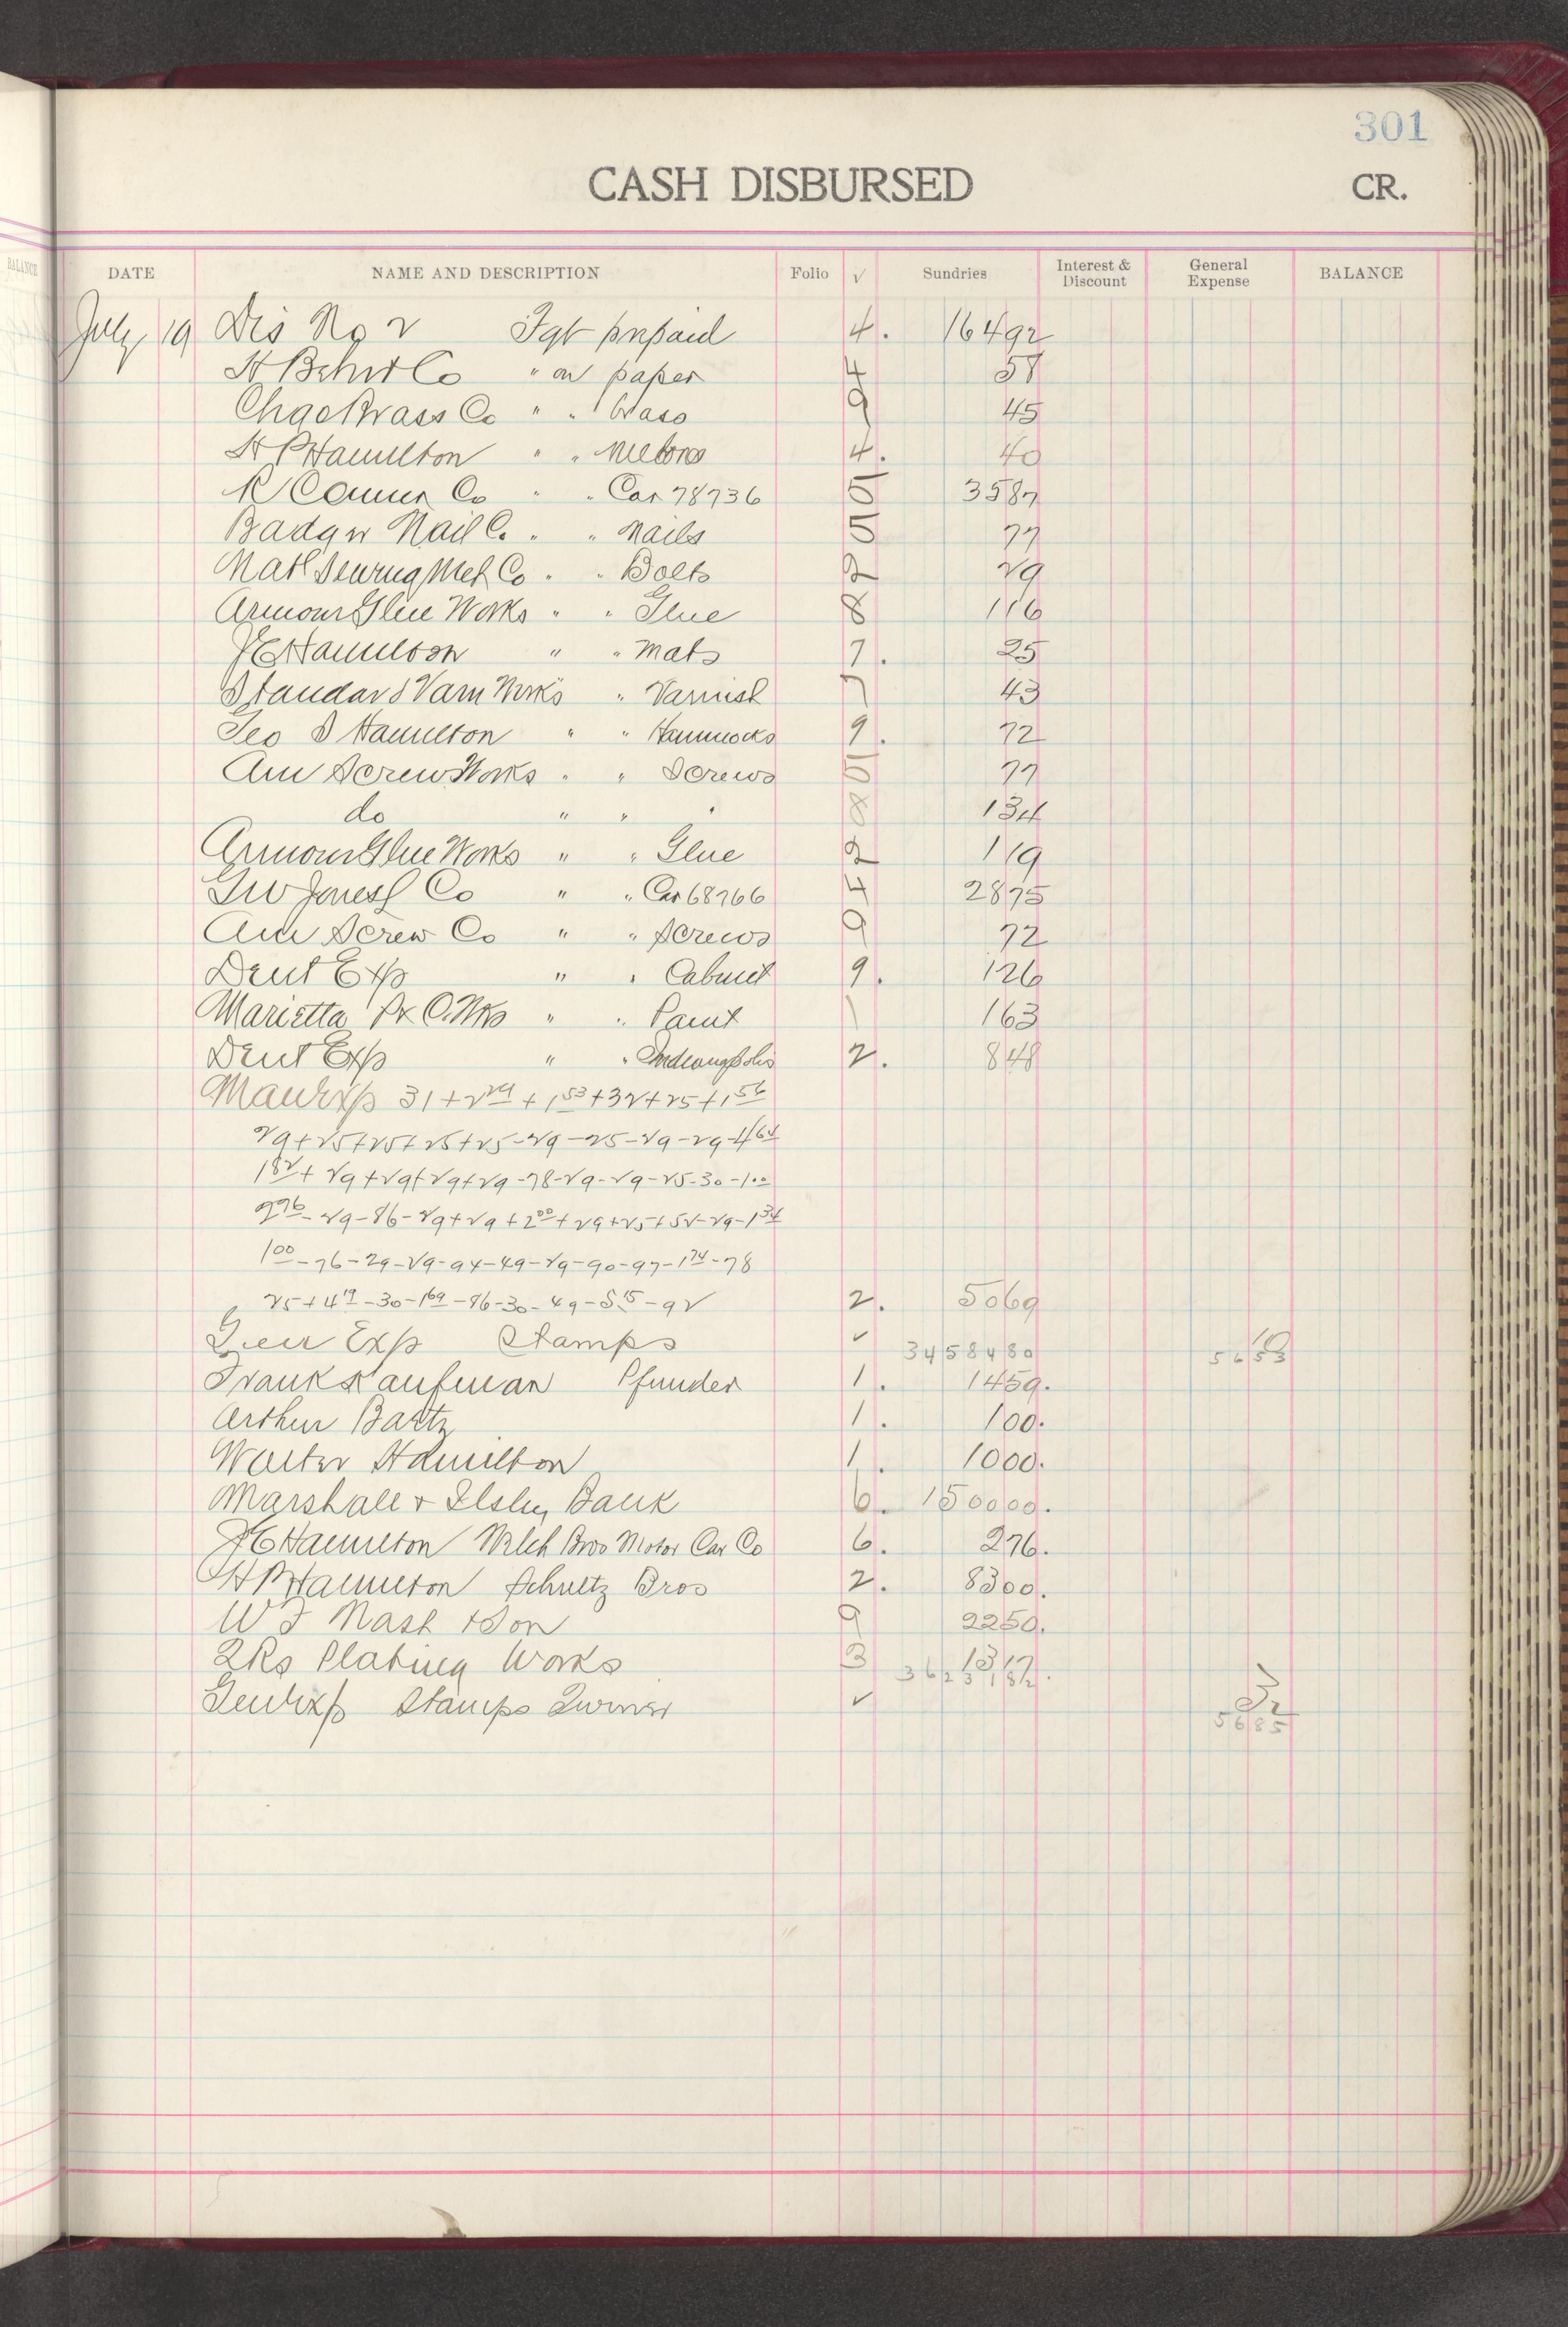 301
CASH DISBURSED CR.
BALANCE
DATE NAME AND DESCRIPTION Folio √ Sundries Interest & Discount General Expense BALANCE
July 19 Dis No 2 Fgt prepaid 4. 16492
H Behrt Co " on paper 4 58
Chas Brass Co " " Brass 9 45
H P Hamilton " " Melons 4. 40
R Conner Co " " Car 78736 5 3587
Badger Nail Co " " Nails 5 77
Natl Screw Mch Co " " Bolts 2 29
Armour Glue Works " " Glue 8 116
J E Hamilton " " Mats 7. 25
Standard Varn Works " Varnish 7 43
Geo S Hamilton " " Hammocks 9. 72
Am Screw Works " " Screws 5 77
do " " " 8 134
Armour Glue Works " " Glue 2 119
G W Jones L Co " " Car 68766 4 2875
Am Screw Co " " Screws 9 72
Dent Exp " " Cabinet 9. 126
Marietta Pt & C. Wks " " Paint 1 163
Dent Exp " " Indeanapolis 2. 848
Man Exp 31+2 29+1 53+32+25+1 56
29+25+25+25+25-29-25-29-29-4 64
1 82+29+29+29+29-78-29-29-25-30-1 00
2 76-29-86-29+29+2 00+29+25+52-29-1 34
1 00-76-29-29-94-49-29-90-97-1 74-78
25+4 19-30-1 69-96-30-49-5 15-92 2. 5069
Gen Exp Stamps ✓ 3458480 10 5653
Frank Kaufman Pfunder 1. 1459.
Arthur Bartz 1. 100.
Walter Hamilton 1. 1000.
Marshall + Ilsley Bank 6. 150000.
J E Hamilton Welch Bros Motor Car Co 6. 276.
H P Hamilton Schultz Bros 2. 8300.
W F Nash + Son 9 2250.
2Rs Plating Works 3 1317 3623182.
Gen Exp Stamps ✓ 32 5685